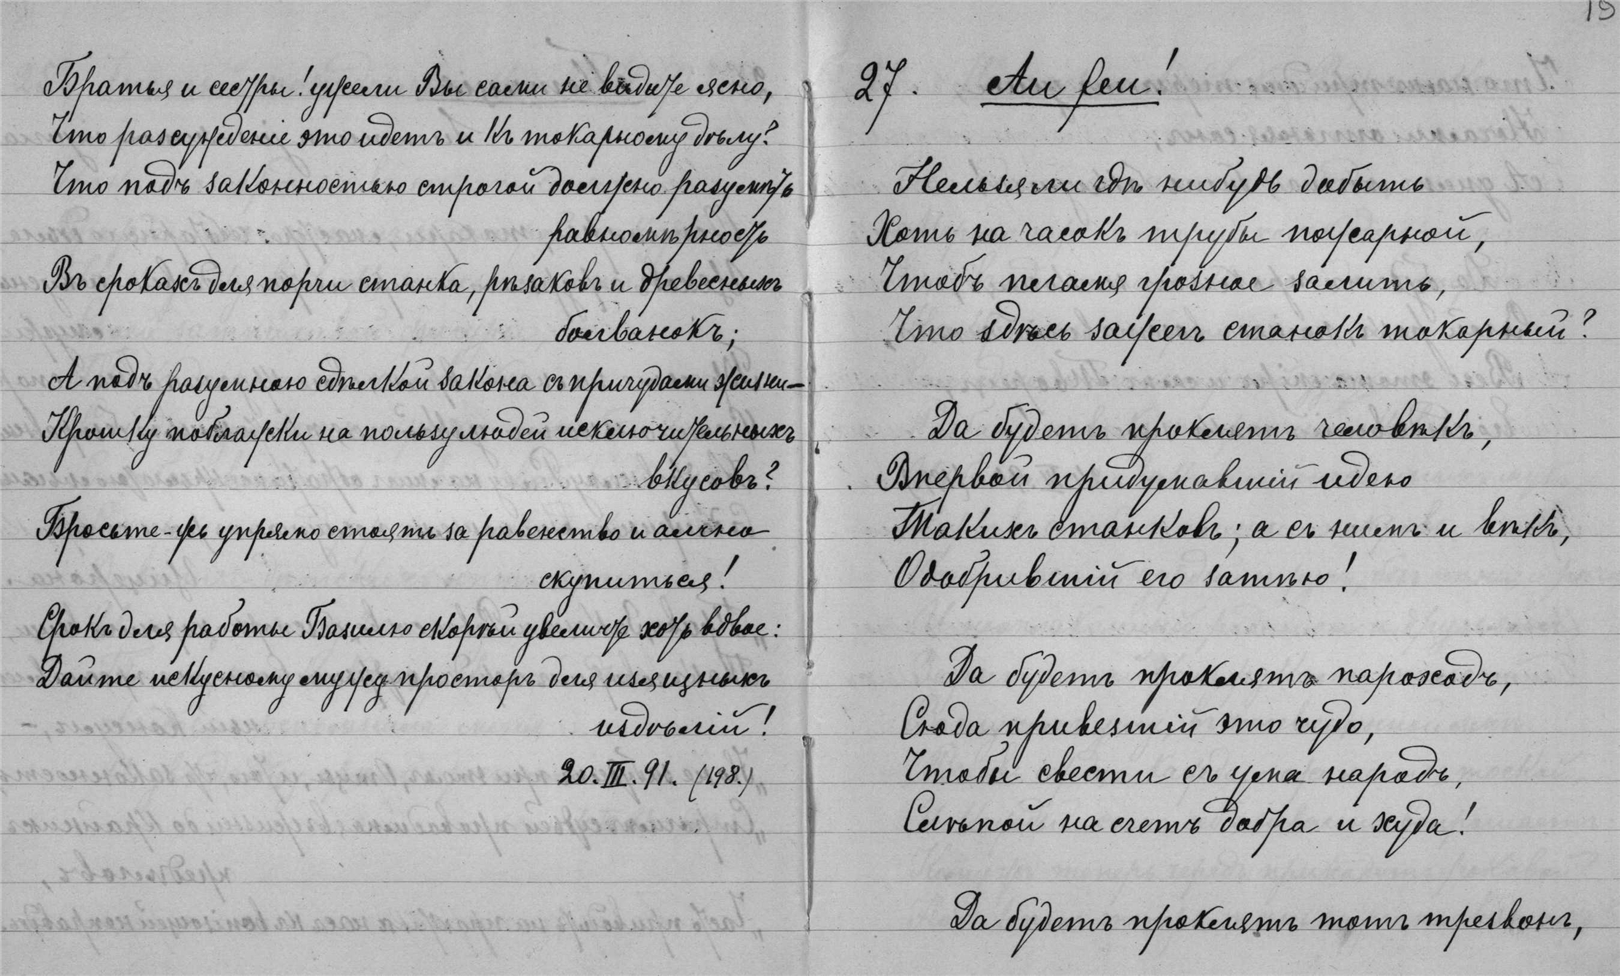 Братья и сестры! ужели Вы сами не видите ясно,
Что разсужденіе это идетъ и къ токарному дѣлу?
Что подъ законностью строгой должно разумѣть
равномѣрность
Въ срокахъ для порчи станка, рѣзаковъ и древесныхъ
болванокъ;
А подъ разумною сдѣлкой закона съ причудами жизни—
Крошку поблажки на пользу людей исключительныхъ
вкусовъ?
Бросьте-жъ упрямо стоять за равенство и алчно
скупиться!
Срокъ для работы Базилю скорѣй увеличьте хоть вдвое:
Дайте искусному мужу просторъ для изящныхъ
издѣлій!
20.III.91. (198.)
19
27. Au feu!
Нельзя ли гдѣ нибудь добыть
Хоть на часокъ трубы пожарной,
Чтобъ пламя грозное залить,
Что здѣсь зажегъ станокъ токарный?
Да будетъ проклятъ человѣкъ,
Впервой придумавшій идею
Такихъ станковъ; а съ нимъ и вѣкъ,
Одобрившій его затѣю!
Да будетъ проклятъ пароходъ,
Сюда привезшій это чудо,
Чтобы свести съ ума народъ,
Слѣпой на счетъ добра и худа!
Да будетъ проклятъ тотъ трезвонъ,